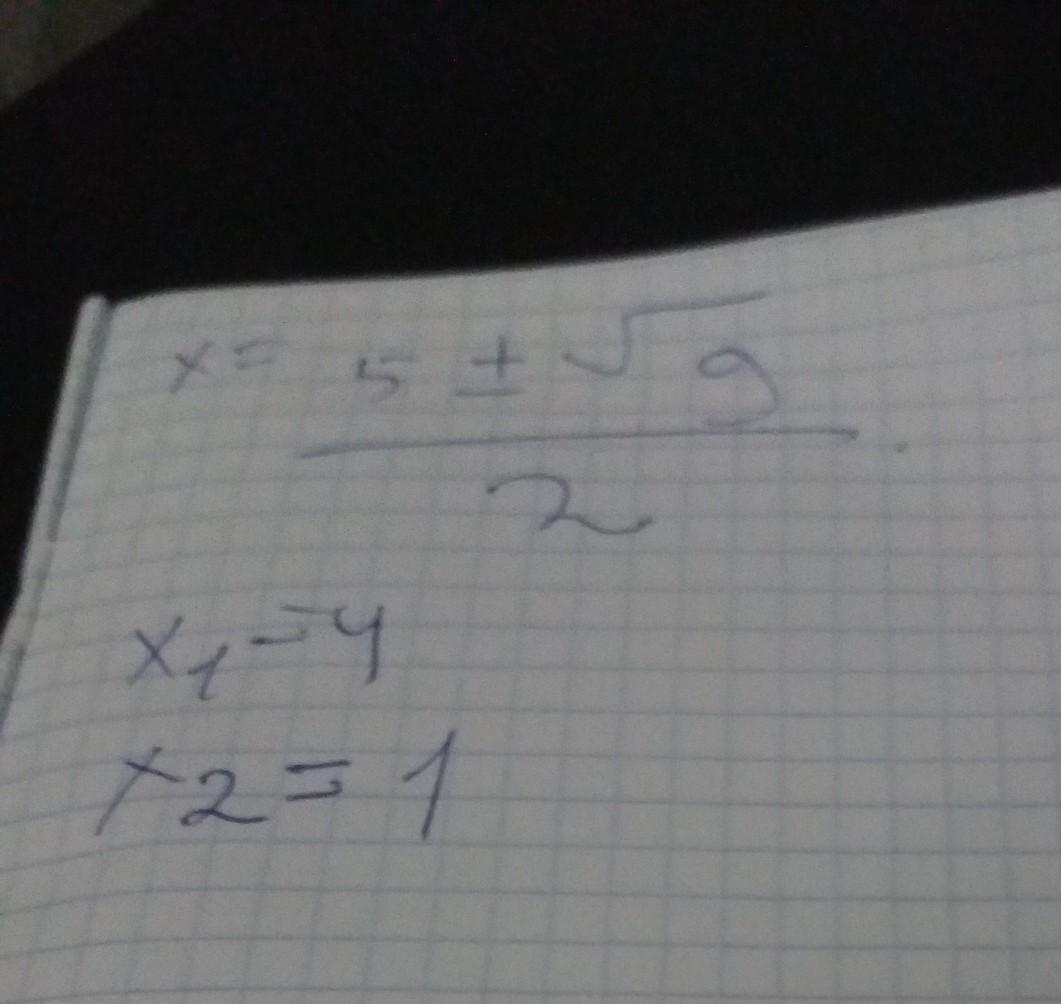 x = (5 ± √9) / 2.
x₁ = 4
x₂ = 1